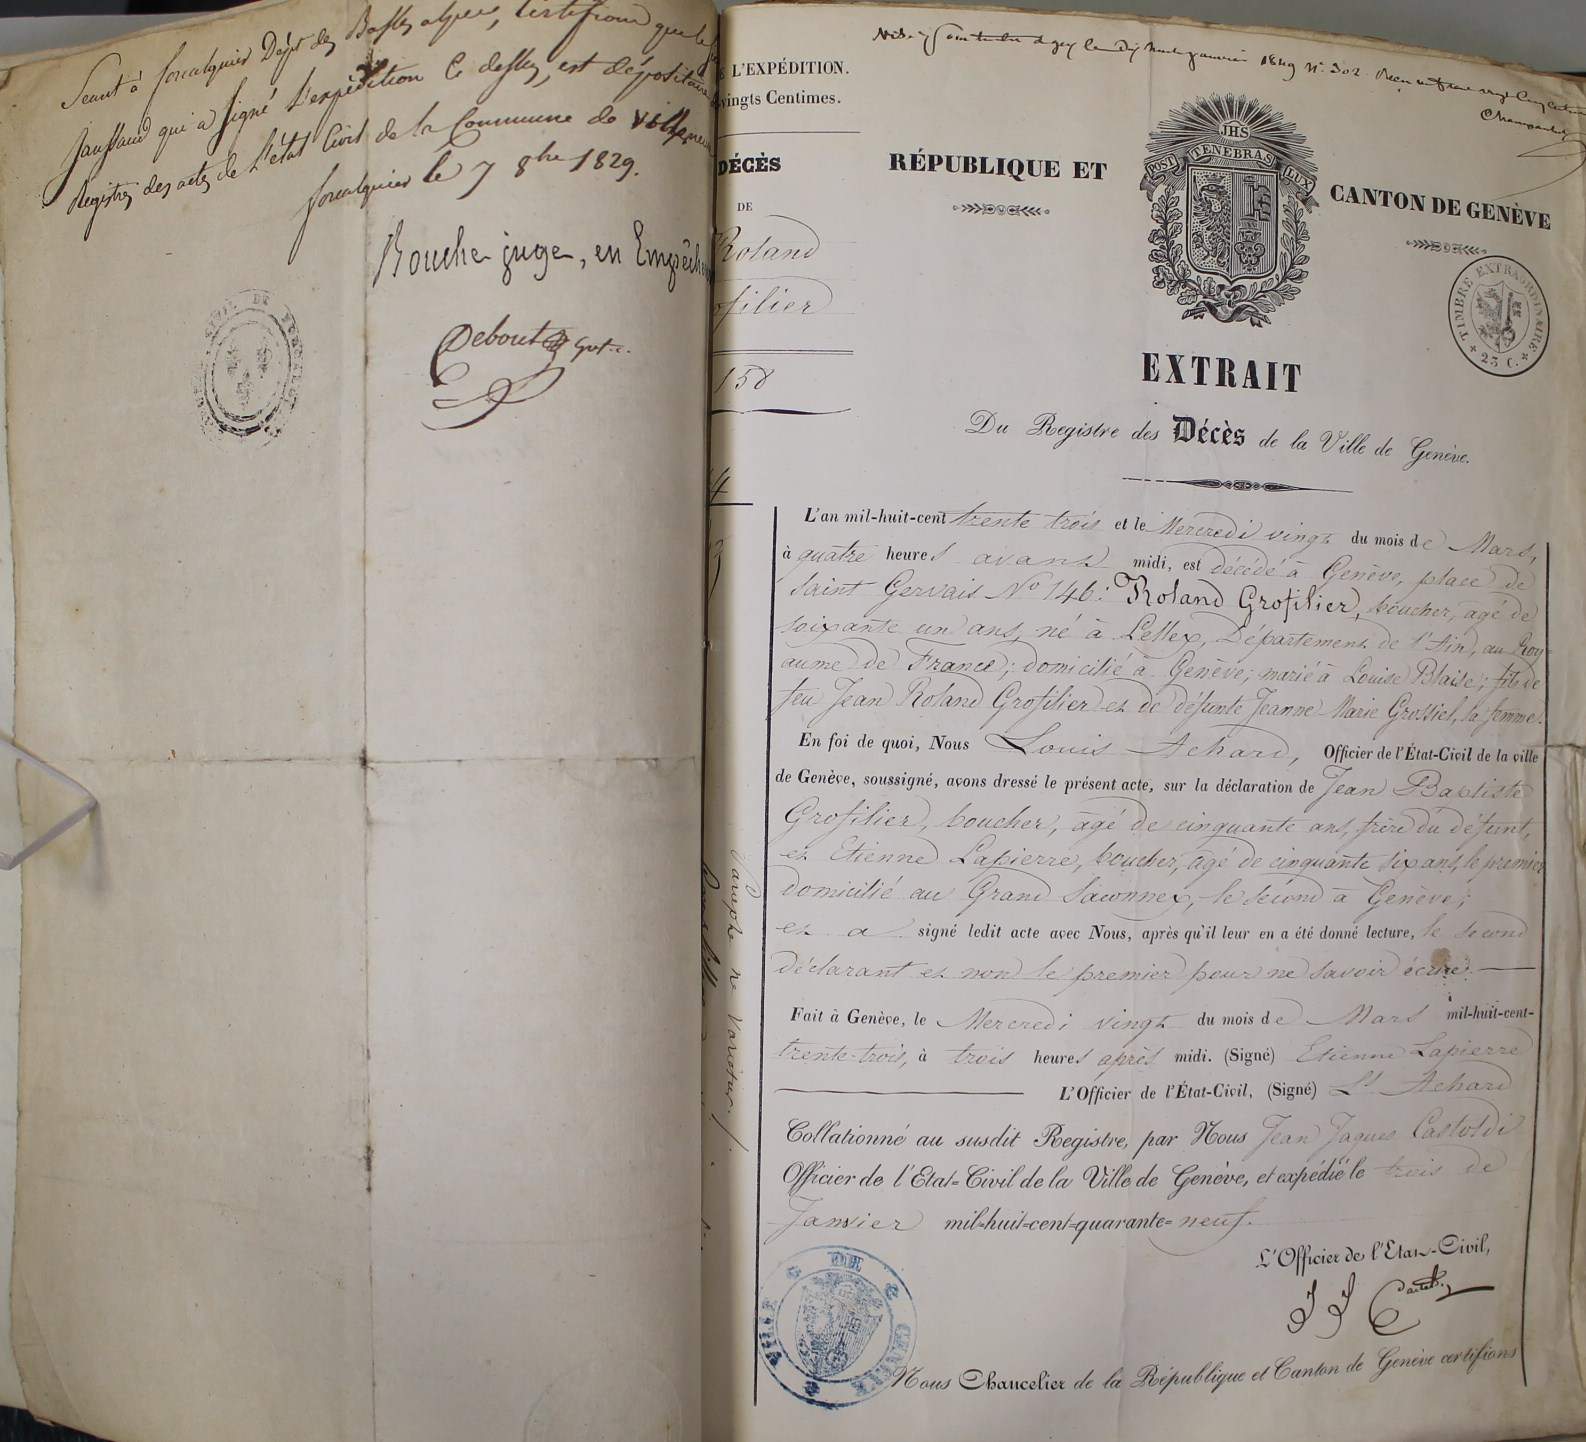 Séant à forcalquier Dépt des Basses alpes, Certifions que le
Jaussaud qui a signé L'expédition Ci dessus, est dépositaire
Registres des actes de L'état Civil de la Commune de
forcalquier le 7 8bre 1829.
Bouche juge, en Empêche
Debout
L'EXPÉDITION.
vingts Centimes.
DÉCÈS
DE
Roland
ofilier
158
1849 N° 302
JHS
POST TENEBRAS LUX
RÉPUBLIQUE ET
CANTON DE GENÈVE
TIMBRE EXTRAORDINAIRE
25 C.
EXTRAIT
Du Registre des Décès de la Ville de Genève.
L'an mil-huit-cent trente trois et le Mercredi vingt du mois de Mars,
à quatre heures avant midi, est décédé à Genève, place de
Saint Gervais N° 146: Roland Grofilier, boucher, agé de
soixante un ans, né à Lellex, Département de l'Ain, au Roy=
aume de France; domicilié à Genève; marié à Louise Blaise; fils de
feu Jean Roland Grofilier et de défunte Jeanne Marie Grossiel, sa femme.
En foi de quoi, Nous Louis Achard, Officier de l'État-Civil de la ville
de Genève, soussigné, avons dressé le présent acte, sur la déclaration de Jean Baptiste
Grofilier, boucher, âgé de cinquante ans, frère du défunt,
et Etienne Lapierre, boucher, agé de cinquante six ans, le premier
domicilié au Grand Saconnex, le second à Genève;
et a signé ledit acte avec Nous, après qu'il leur en a été donné lecture, le second
déclarant et non le premier pour ne savoir écrire.
Fait à Genève, le Mercredi vingt du mois de Mars mil-huit-cent-
trente-trois, à trois heures après midi. (Signé) Etienne Lapierre
L'Officier de l'État-Civil, (Signé) Ls Achard
Collationné au susdit Registre, par Nous Jean Jaques Castoldi
Officier de l'Etat=Civil de la Ville de Genève, et expédié le trois de
Janvier mil=huit=cent=quarante= neuf.
L'Officier de l'Etat-Civil,
J J Castoldi
VILLE DE GENÈVE
Nous Chancelier de la République et Canton de Genève certifions
Paraphé ne Varietur